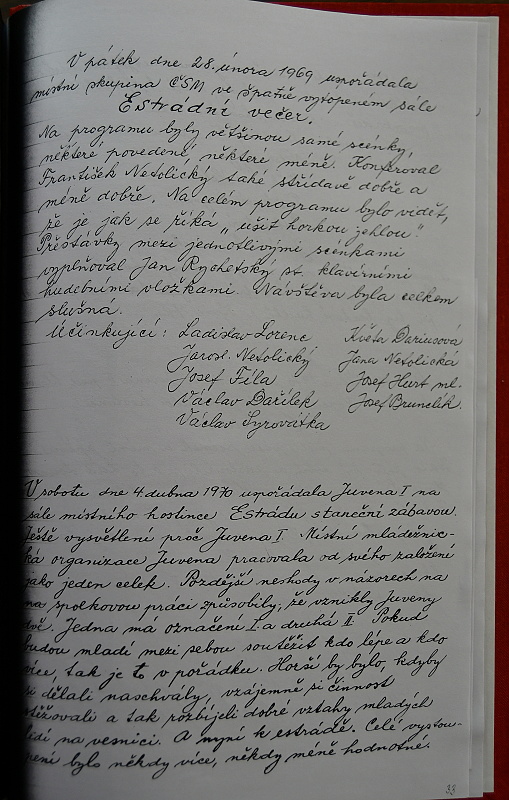 V pátek dne 28. února 1969 uspořádala
místní skupina ČSM ve špatně vytopeném sále
Estrádní večer.
Na programu byly většinou samé scénky,
některé povedené, některé méně. Konferoval
František Netolický také střídavě dobře a
méně dobře. Na celém programu bylo vidět,
že je jak se říká „ušit horkou jehlou".
Přestávky mezi jednotlivými scénkami
vyplňoval Jan Rychetský st. klavírními
hudebními vložkami. Návštěva byla celkem
slušná.
Účinkující: Ladislav Lorenc Květa Dariusová
Jarosl. Netolický Jana Netolická
Josef Fila Josef Hurt ml.
Václav Dařílek Josef Brunclík.
Václav Syrovátka
V sobotu dne 4. dubna 1970 uspořádala Juvena I na
sále místního hostince Estrádu s taneční zábavou.
Ještě vysvětlení proč Juvena I. Místní mládežnic-
ká organizace Juvena pracovala od svého založení
jako jeden celek. Pozdější neshody v názorech na
na spolkovou práci způsobily, že vznikly Juveny
dvě. Jedna má označení I. a druhá II. Pokud
budou mladí mezi sebou soutěžit kdo lépe a kdo
více, tak je to v pořádku. Horší by bylo, kdyby
si dělali naschvály, vzájemně si činnost
ztěžovali a tak rozbíjeli dobré vztahy mladých
lidí na vesnici. A nyní k estrádě. Celé vystou-
pení bylo někdy více, někdy méně hodnotné.
33